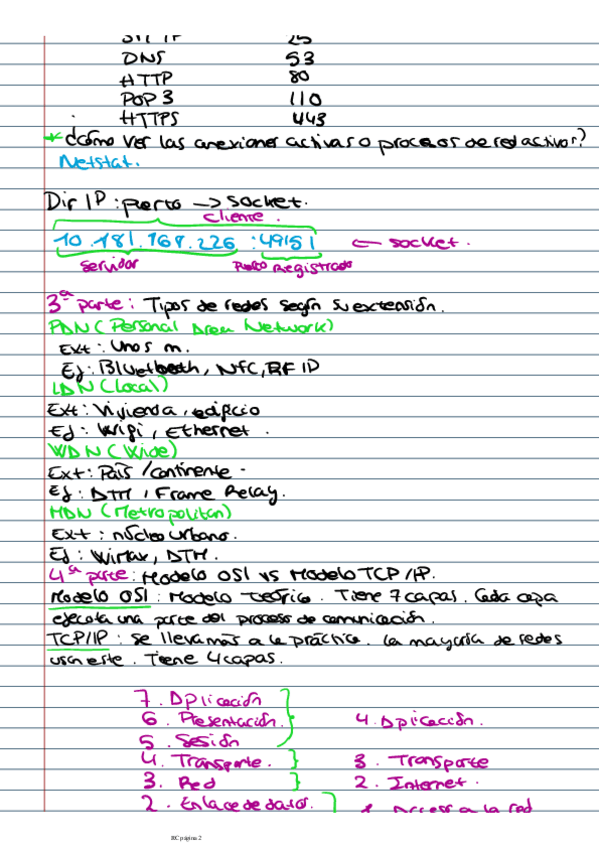 25
DNS 53
HTTP 80
POP 3 110
HTTPS 443
* ¿Cómo ver las conexiones activas o procesos de red activos?
Netstat.
Dir IP : puerto -> socket.
cliente.
10.181.168.226 :49151 <- socket.
Servidor Puerto Registrado
3ª parte: Tipos de redes según su extensión.
PAN (Personal Area Network)
Ext: Unos m.
Ej: Bluetooth, NFC, RFID
LAN (Local)
Ext: Vivienda, edificio
Ej: Wifi, Ethernet.
WAN (Wide)
Ext: País / continente.
Ej: ATM, Frame Relay.
MAN (Metropolitan)
Ext: núcleo urbano.
Ej: WiMax, ATM.
4ª parte: Modelo OSI vs Modelo TCP/IP.
Modelo OSI: Modelo Teórico. Tiene 7 capas. Cada capa
ejecuta una parte del proceso de comunicación.
TCP/IP: Se llevamos a la práctica. La mayoría de redes
usan este. Tiene 4 capas.
7. Aplicación
6. Presentación. 4. Aplicación.
5. Sesión
4. Transporte. 3. Transporte
3. Red 2. Internet.
2. Enlace de datos. 1 Acceso a la red
RC página 2